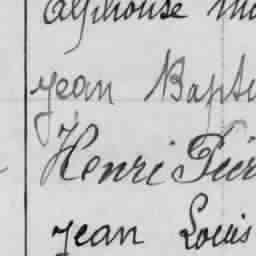 Alphonse Ma
Jean Bapti
Henri Pier
Jean Louis